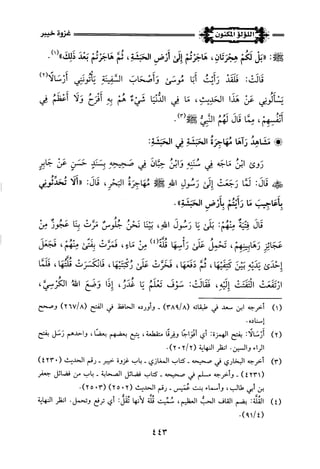 اللؤلؤ المكنون
غزوة خيبر
ﷺ: «بَلْ لَكُمْ هِجْرَتَانِ، هَاجَرْتُمْ إِلَىٰ أَرْضِ الحَبَشَةِ، ثُمَّ هَاجَرْتُمْ بَعْدَ ذَلِكَ»(١).
قَالَتْ: فَلَقَدْ رَأَيْتُ أَبَا مُوسَىٰ وَأَصْحَابَ السَّفِينَةِ يَأْتُونَنِي أَرْسَالًا(٢)
يَسْأَلُونِي عَنْ هَذَا الحَدِيثِ، مَا فِي الدُّنْيَا شَيْءٌ هُمْ بِهِ أَفْرَحُ وَلَا أَعْظَمُ فِي
أَنْفُسِهِمْ، مِمَّا قَالَ لَهُمُ النَّبِيُّ ﷺ(٣).
* مَشَاهِدُ رَآهَا مُهَاجِرَةُ الحَبَشَةِ فِي الحَبَشَةِ:
رَوَىٰ ابْنُ مَاجَه فِي سُنَنِهِ وَابْنُ حِبَّانَ فِي صَحِيحِهِ بِسَنَدٍ حَسَنٍ عَنْ جَابِرٍ
ﷺ قَالَ: لَمَّا رَجَعَتْ إِلَىٰ رَسُولِ اللهِ ﷺ مُهَاجِرَةُ البَحْرِ، قَالَ: «أَلَا تُحَدِّثُونِي
بِأَعَاجِيبِ مَا رَأَيْتُمْ بِأَرْضِ الحَبَشَةِ».
قَالَ فِتْيَةٌ مِنْهُمْ: بَلَىٰ يَا رَسُولَ اللهِ، بَيْنَا نَحْنُ جُلُوسٌ مَرَّتْ بِنَا عَجُوزٌ مِنْ
عَجَائِزِ رَهَابِينِهِمْ، تَحْمِلُ عَلَىٰ رَأْسِهَا قُلَّةً(٤) مِنْ مَاءٍ، فَمَرَّتْ بِفَتًى مِنْهُمْ، فَجَعَلَ
إِحْدَىٰ يَدَيْهِ بَيْنَ كَتِفَيْهَا، ثُمَّ دَفَعَهَا، فَخَرَّتْ عَلَىٰ رُكْبَتَيْهَا، فَانْكَسَرَتْ قُلَّتُهَا، فَلَمَّا
ارْتَفَعَتْ التَفَتَتْ إِلَيْهِ، فَقَالَتْ: سَوْفَ تَعْلَمُ يَا غُدَرُ، إِذَا وَضَعَ اللهُ الكُرْسِيَّ،
(١) أخرجه ابن سعد في طبقاته (٣٨٩/٨) ـ وأورده الحافظ في الفتح (٢٦٧/٨) وصحح
إسناده.
(٢) أَرْسَالًا: بفتح الهمزة: أي أفْوَاجًا وفِرَقًا متقطعة، يتبع بعضهم بعضًا، واحدهم رَسَل بفتح
الراء والسين. انظر النهاية (٢٠٢/٢).
(٣) أخرجه البخاري في صحيحه ـ كتاب المغازي ـ باب غزوة خيبر ـ رقم الحديث (٤٢٣٠)
(٤٢٣١) ـ وأخرجه مسلم في صحيحه ـ كتاب فضائل الصحابة ـ باب من فضائل جعفر
بن أبي طالب، وأسماء بنت عُمَيس ـ رقم الحديث (٢٥٠٢) (٢٥٠٣).
(٤) القُلَّةُ: بضم القاف الحبُّ العظيم، سُمِّيت قُلَّة لأنها تُقَلُّ: أي ترفع وتحمل. انظر النهاية
(٩١/٤).
٤٤٣